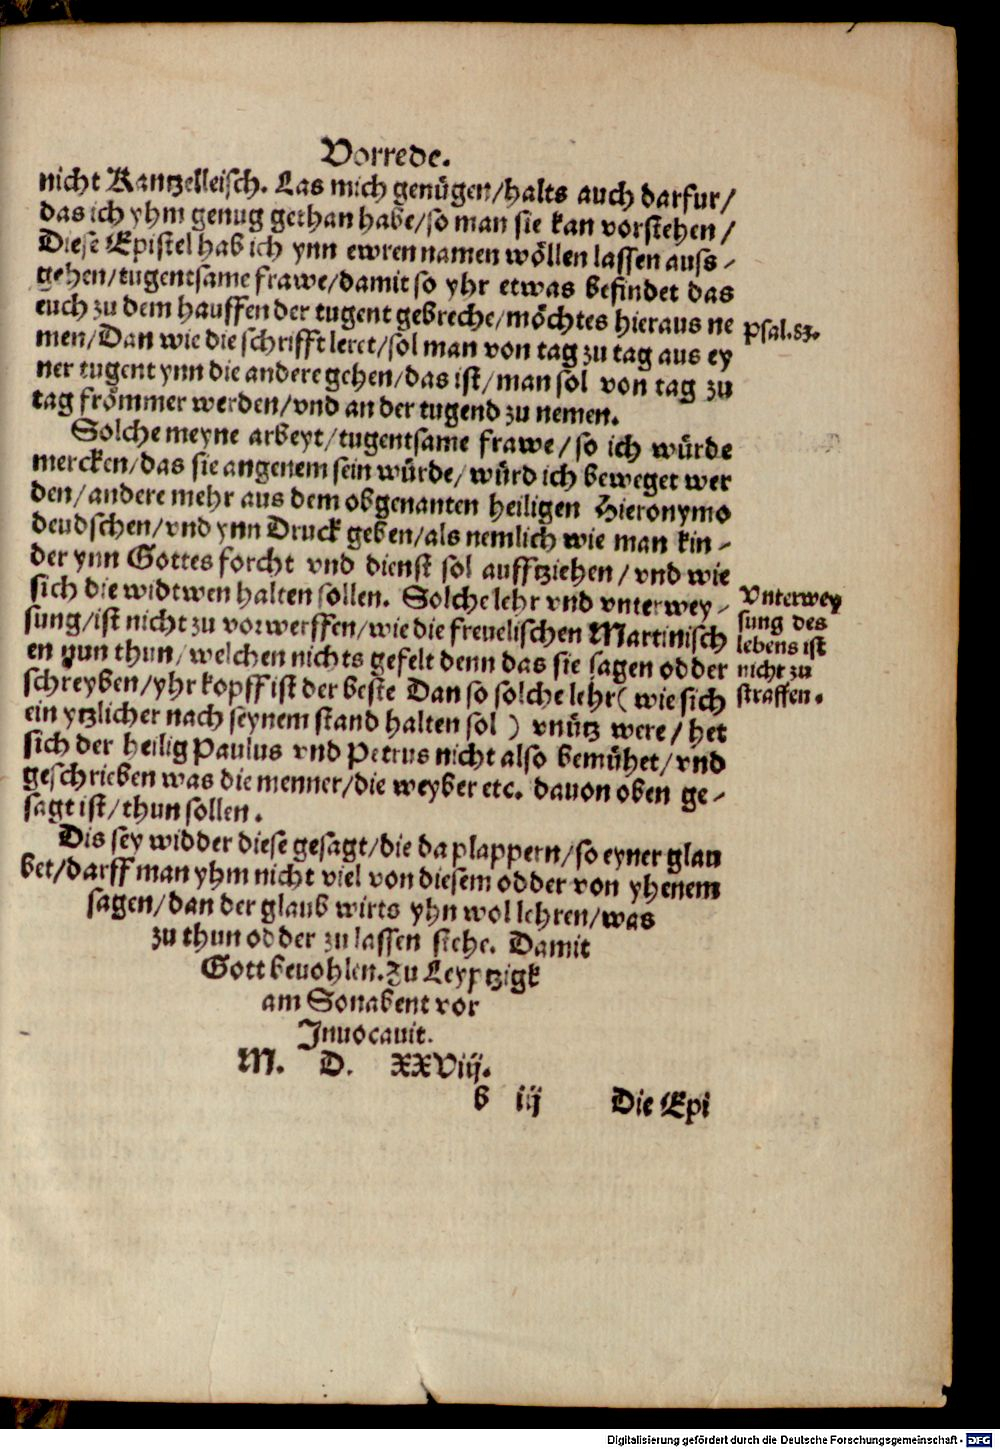 Vorrede.
nicht Kantzelleisch. Las mich genügen/halts auch darfur/
das ich yhm genug gethan habe/so man sie kan vorstehen/
Diese Epistel hab ich ynn ewren namen wöllen lassen auss-
gehen/tugentsame frawe/damit so yhr etwas befindet das
euch zu dem hauffen der tugent gebreche/möchtes hieraus ne
men/Dan wie die schrifft leret/sol man von tag zu tag aus ey
ner tugent ynn die andere gehen/das ist/man sol von tag zu
tag frömmer werden/vnd an der tugend zu nemen.
Psal.83.
Solche meyne arbeyt/tugentsame frawe/so ich würde
mercken/das sie angenem sein würde/würd ich beweget wer
den/andere mehr aus dem obgenanten heiligen Hieronymo
deudschen/vnd ynn Druck geben/als nemlich wie man kin-
der ynn Gottes forcht vnd dienst sol aufftziehen/vnd wie
sich die widtwen halten sollen. Solche lehr vnd vnterwey-
sung/ist nicht zu vorwerffen/wie die freuelischen Martinisch
en yun thun/welchen nichts gefelt denn das sie sagen odder
schreyben/yhr kopff ist der beste Dan so solche lehr( wie sich
ein ytzlicher nach seynem stand halten sol ) vnütz were/het
sich der heilig Paulus vnd Petrus nicht also bemühet/vnd
geschrieben was die menner/die weyber etc. dauon oben ge-
sagt ist/thun sollen.
Vnterwey
sung des
lebens ist
nicht zu
straffen.
Dis sey widder diese gesagt/die da plappern/so eyner glau
bet/darff man yhm nicht viel von diesem odder von yhenem
sagen/dan der glaub wirts yhn wol lehren/was
zu thun odder zu lassen stehe. Damit
Gott beuohlen. Zu Leyptzigk
am Sonabent vor
Inuocauit.
M. D. XXViij.
b iij Die Epi
Digitalisierung gefördert durch die Deutsche Forschungsgemeinschaft - DFG